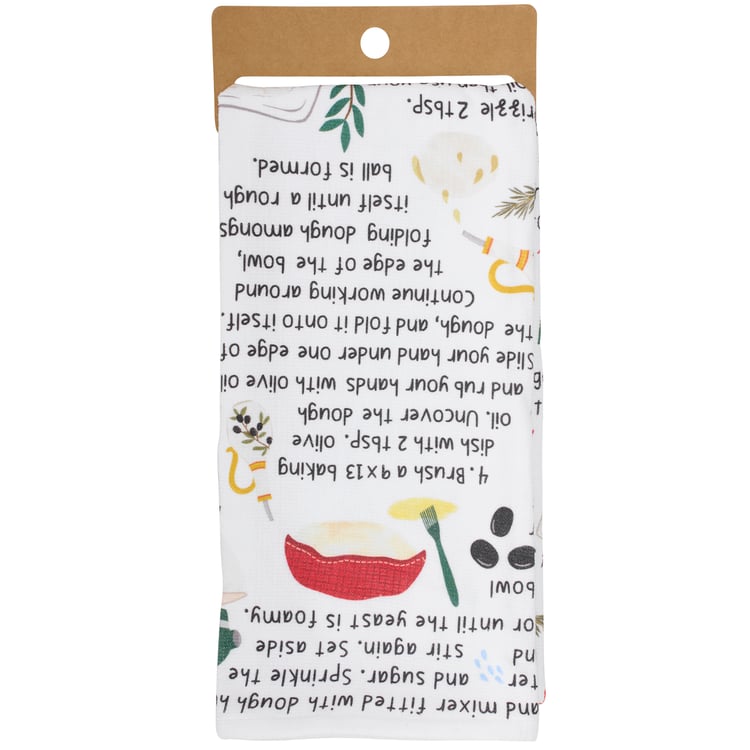 and mixer fitted with dough h
ter and sugar. Sprinkle the
nd stir again. Set aside
or until the yeast is foamy.
bowl
4. Brush a 9x13 baking
dish with 2 tbsp. olive
oil. Uncover the dough
and rub your hands with olive oil
Slide your hand under one edge of
the dough, and fold it onto itself.
Continue working around
the edge of the bowl,
folding dough amongs
itself until a rough
ball is formed.
rizzle 2 tbsp.